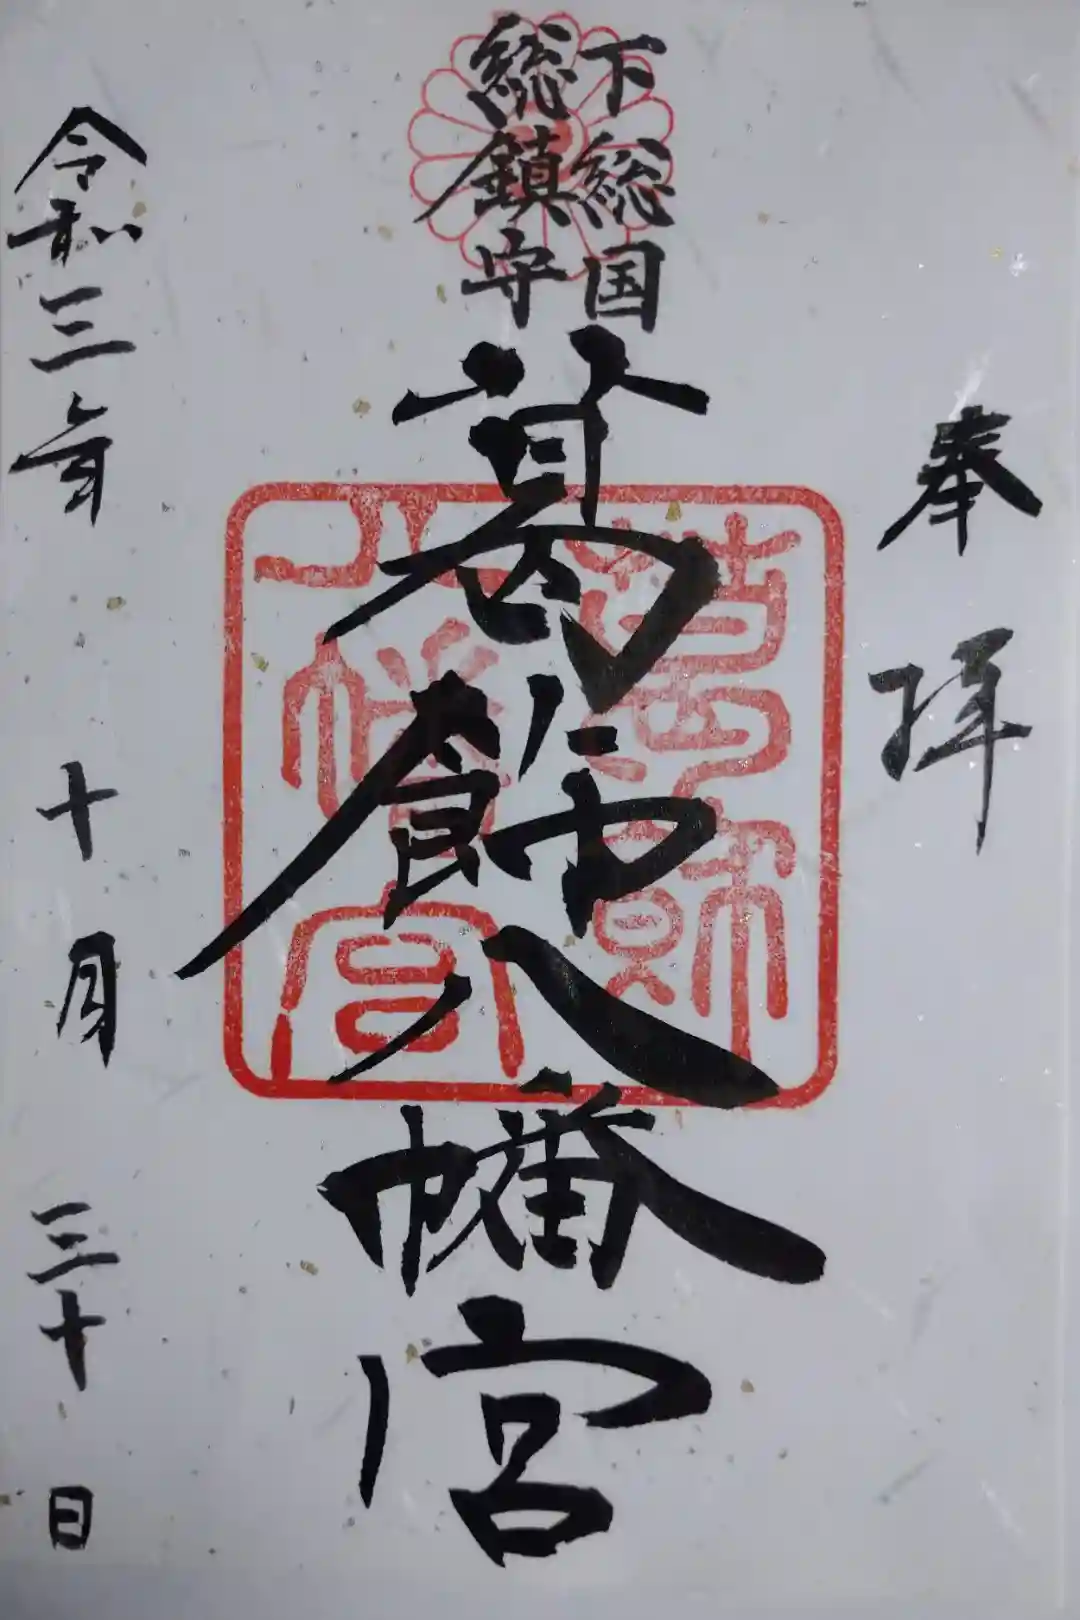 奉拝
下総国
総鎮守
葛飾八幡宮
葛飾
八幡宮
令和三年十月三十日